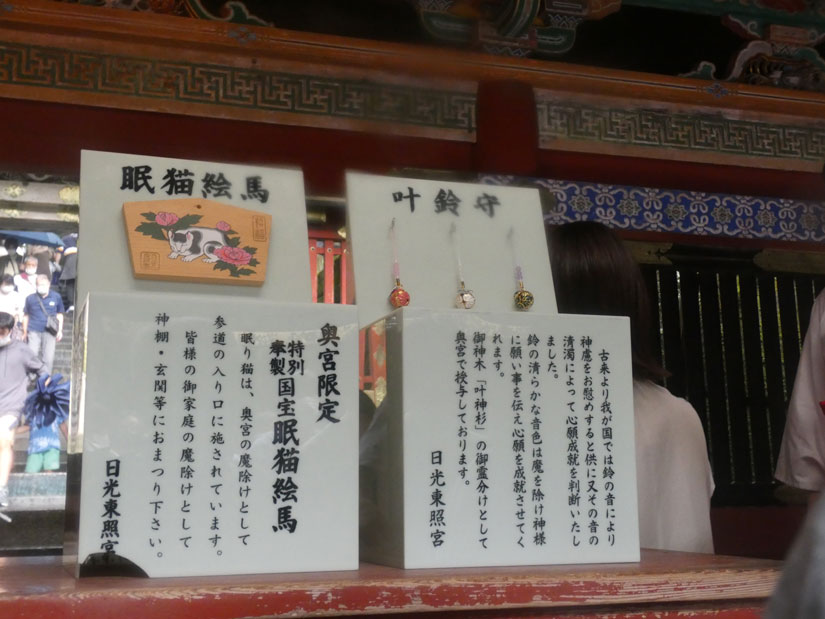 眠猫絵馬
奥宮限定
特別奉製
国宝眠猫絵馬
眠り猫は、奥宮の魔除けとして
参道の入り口に施されています。
皆様の御家庭の魔除けとして
神棚・玄関等におまつり下さい。
日光東照宮
叶鈴守
古来より我が国では鈴の音により
神慮をお慰めすると供に又その音の
清濁によって心願成就を判断いたし
ました。
鈴の清らかな音色は魔を除け神様
に願い事を伝え心願を成就させてく
れます。
御神木「叶神杉」の御霊分けとして
奥宮で授与しております。
日光東照宮